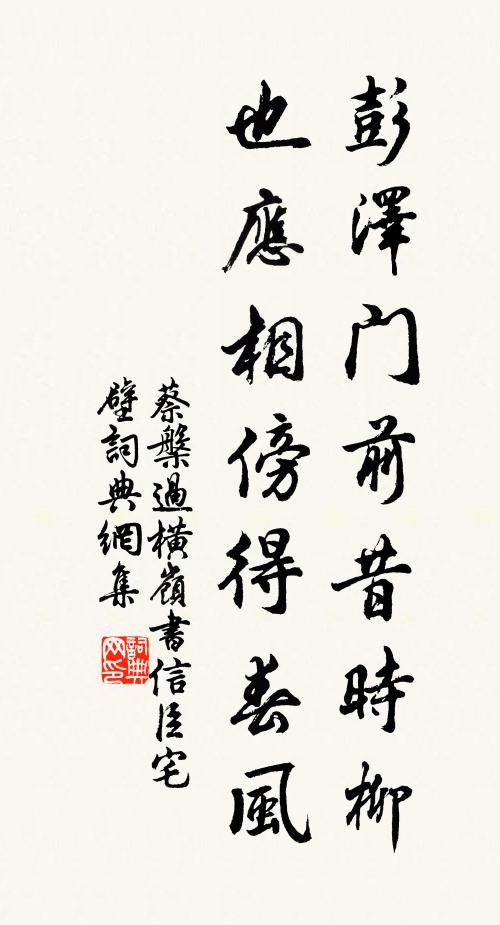 彭澤門前昔時柳
也應相傍得春風
蔡槃過橫嶺書信臣宅
壁詞典網集
詞典
网印